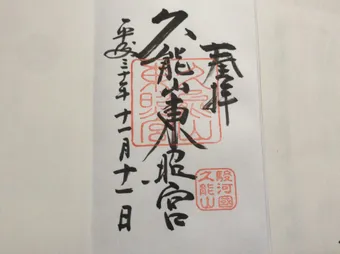 奉拝
久能山東照宮
平成三十年十一月十一日
駿河國
久能山